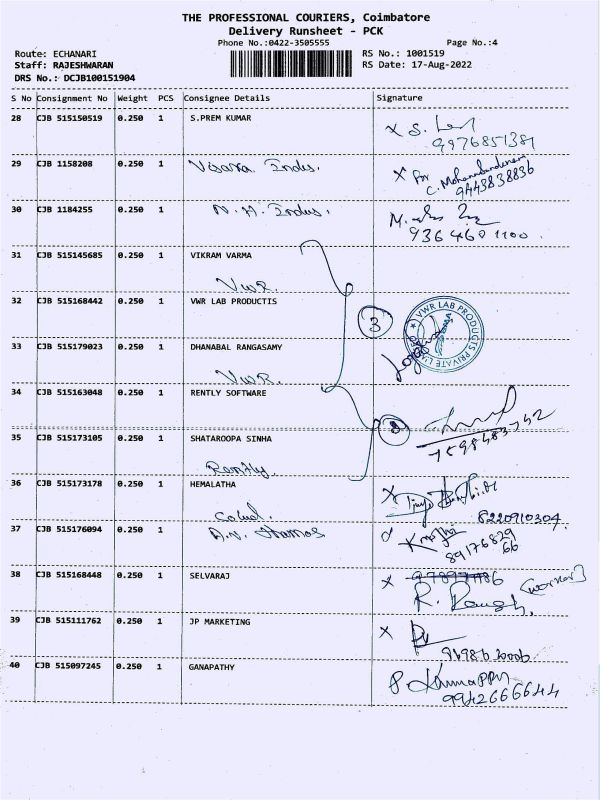 THE PROFESSIONAL COURIERS, Coimbatore
Delivery Runsheet - PCK
Phone No.:0422-3505555 Page No.:4
Route: ECHANARI RS No.: 1001519
Staff: RAJESHWARAN RS Date: 17-Aug-2022
DRS No.: DCJB100151904
S No Consignment No Weight PCS Consignee Details Signature
28 CJB 515150519 0.250 1 S.PREM KUMAR
9976851381
29 CJB 1158208 0.250 1 Indus. X For
9443838836
30 CJB 1184255 0.250 1 N. H. Indus.
9364601100
31 CJB 515145685 0.250 1 VIKRAM VARMA
VWR.
32 CJB 515168442 0.250 1 VWR LAB PRODUCTIS
3 VWR LAB PRODUCTS PRIVATE
33 CJB 515179023 0.250 1 DHANABAL RANGASAMY
VWR.
34 CJB 515163048 0.250 1 RENTLY SOFTWARE
35 CJB 515173105 0.250 1 SHATAROOPA SINHA
7598483742
Rently
36 CJB 515173178 0.250 1 HEMALATHA
8220910304
37 CJB 515176094 0.250 1 Thomas
8917682966
38 CJB 515168448 0.250 1 SELVARAJ
(worker)
39 CJB 515111762 0.250 1 JP MARKETING
40 CJB 515097245 0.250 1 GANAPATHY
9942666644